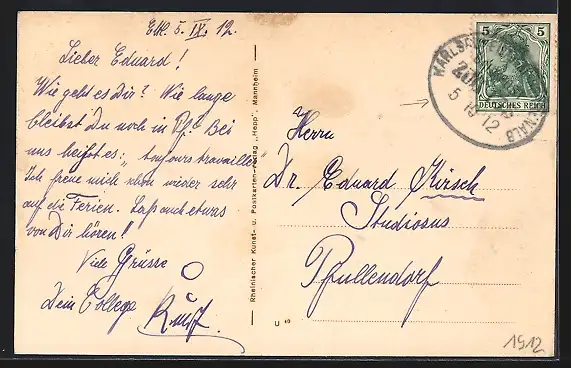 Ettl. 5. IX. 12.
Lieber Eduard!
Wie geht es Dir? Wie lange
bleibst Du noch in Pf.? Bei
uns heißt es: "toujours travailler"
Ich freue mich schon wieder sehr
auf die Ferien. Laß auch etwas
von Dir hören!
Viele Grüsse
Dein College
Rheinischer Kunst- u. Postkarten-Verlag „Hepp“, Mannheim
U 40
5 5
DEUTSCHES REICH
5 12
Herrn
Dr. Eduard Kirsch
Studiosus
Pfullendorf
1912